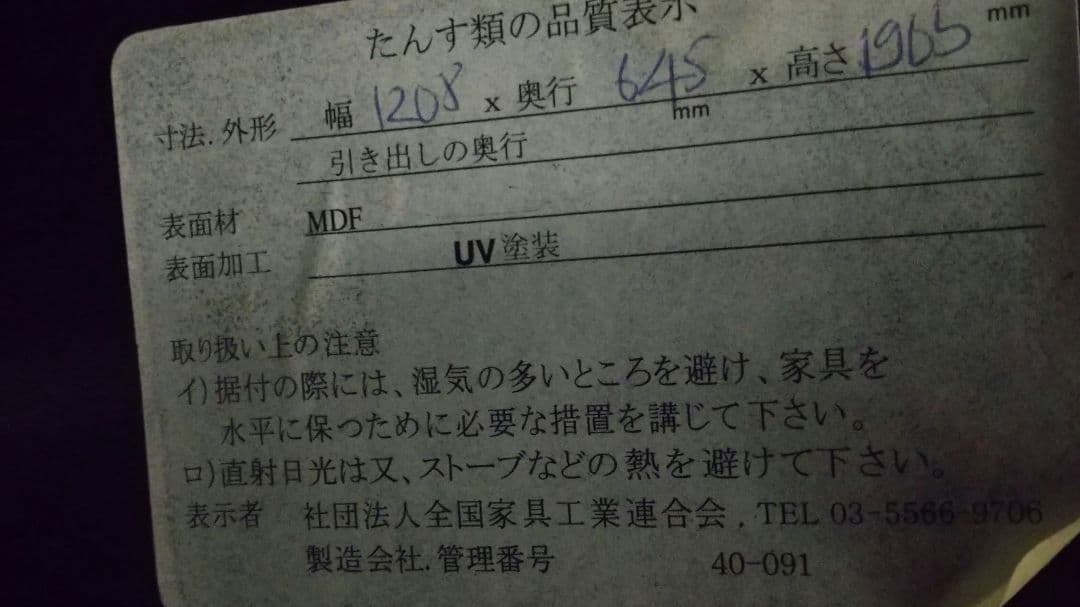 たんす類の品質表示
寸法.外形 幅 1208 x 奥行 645 mm x 高さ 1965 mm
引き出しの奥行
表面材 MDF
表面加工 UV塗装
取り扱い上の注意
イ)据付の際には、湿気の多いところを避け、家具を
水平に保つために必要な措置を講じて下さい。
ロ)直射日光は又、ストーブなどの熱を避けて下さい。
表示者 社団法人全国家具工業連合会. TEL 03-5566-9706
製造会社.管理番号 40-091